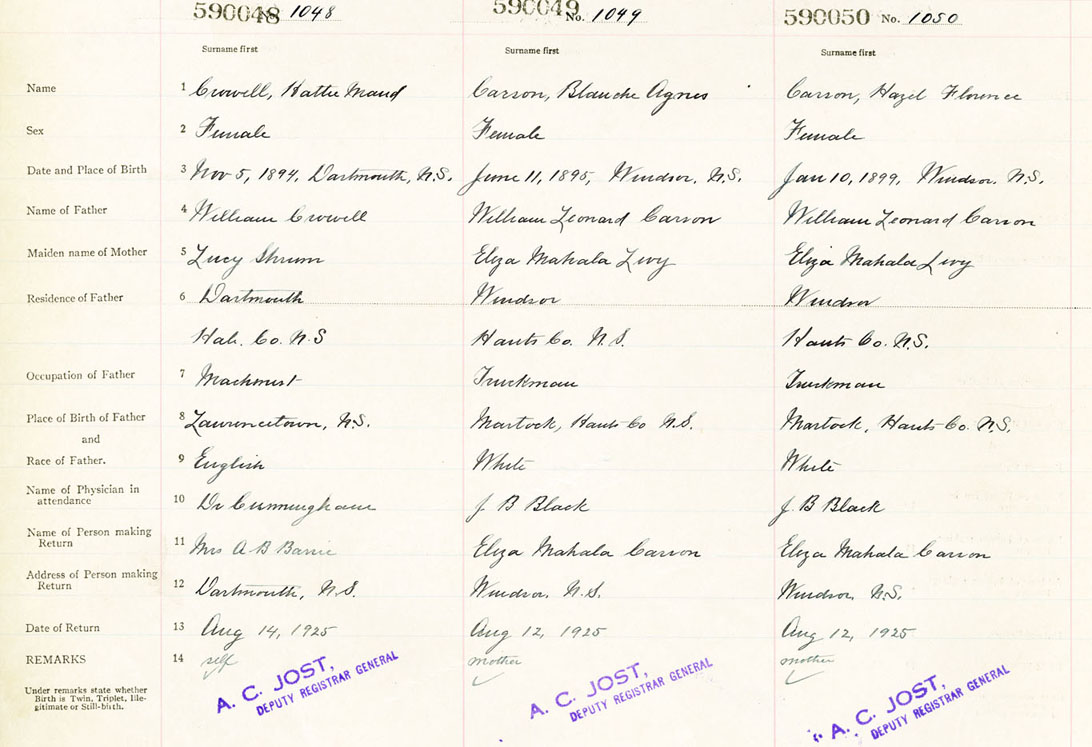 590048 No. 1048 590049 No. 1049 590050 No. 1050
Surname first Surname first Surname first
Name 1 Crowell, Hattie Maud Carson, Blanche Agnes Carson, Hazel Florence
Sex 2 Female Female Female
Date and Place of Birth 3 Nov 5, 1894, Dartmouth, N.S. June 11, 1895, Windsor, N.S. Jan 10, 1899, Windsor, N.S.
Name of Father 4 William Crowell William Leonard Carson William Leonard Carson
Maiden name of Mother 5 Lucy Shrum Eliza Mahala Levy Eliza Mahala Levy
Residence of Father 6 Dartmouth Windsor Windsor
Hali. Co. N.S Hants Co. N.S. Hants Co. N.S.
Occupation of Father 7 Machinist Truckman Truckman
Place of Birth of Father 8 Lawrencetown, N.S. Martock, Hants Co N.S. Martock, Hants Co. N.S.
and
Race of Father. 9 English White White
Name of Physician in
attendance 10 Dr Cunningham J B Black J. B Black
Name of Person making
Return 11 Mrs A B Barrie Eliza Mahala Carson Eliza Mahala Carson
Address of Person making
Return 12 Dartmouth, N.S. Windsor, N.S. Windsor, N.S.
Date of Return 13 Aug 14, 1925 Aug 12, 1925 Aug 12, 1925
REMARKS 14 self mother mother
Under remarks state whether
Birth is Twin, Triplet, Ille-
gitimate or Still-birth.
A. C. JOST, A. C. JOST, A. C. JOST,
DEPUTY REGISTRAR GENERAL DEPUTY REGISTRAR GENERAL DEPUTY REGISTRAR GENERAL